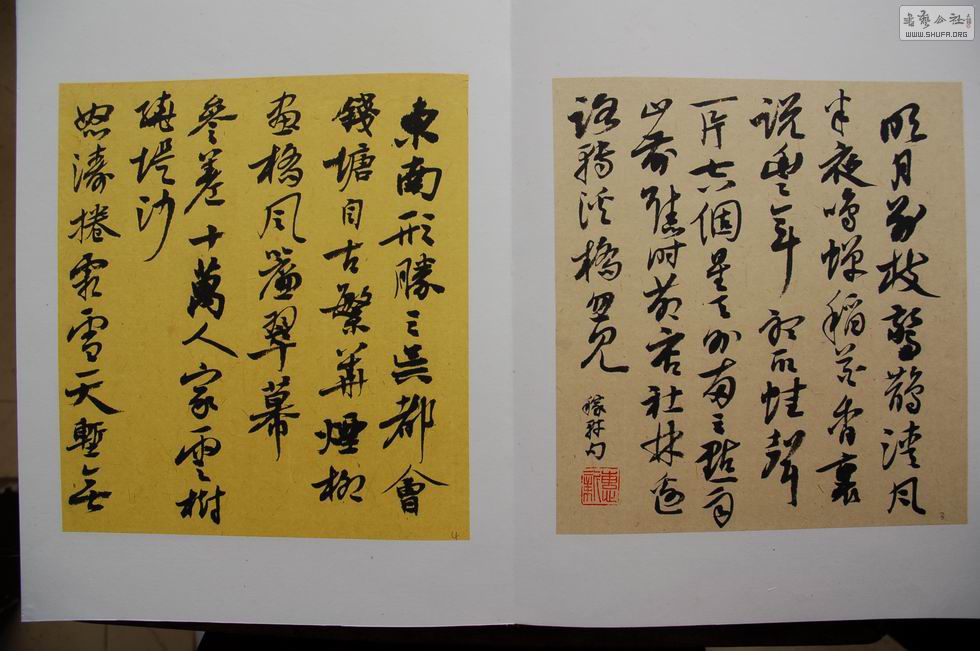 書藝公社
WWW.SHUFA.ORG
明月別枝驚鵲清風
半夜鳴蟬稻花香裏
說豐年聽取蛙聲
一片七八個星天外兩三點雨
山前舊時茅店社林邊
路轉溪橋忽見
稼軒句
惠新
3
東南形勝三吳都會
錢塘自古繁華煙柳
畫橋風簾翠幕
參差十萬人家雲樹
繞堤沙
怒濤捲霜雪天塹無
4